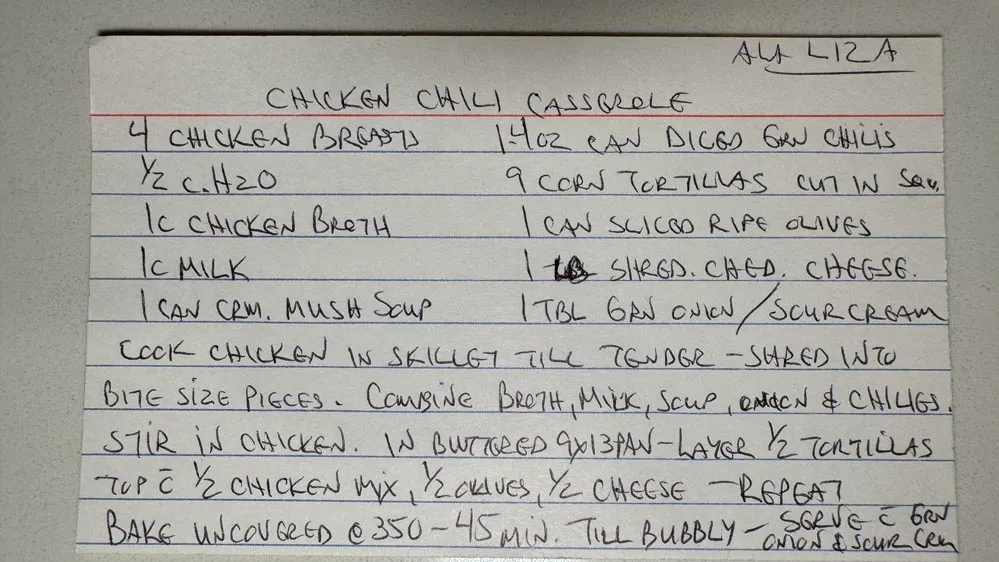 ALA LIZA
CHICKEN CHILI CASSEROLE
4 CHICKEN BREASTS 1-4OZ CAN DICED GRN CHILIS
1/2 C. H2O 9 CORN TORTILLAS CUT IN SQU.
1C CHICKEN BROTH 1 CAN SLICED RIPE OLIVES
1C MILK 1 LB SHRED. CHED. CHEESE.
1 CAN CRM. MUSH SOUP 1 TBL GRN ONION / SOUR CREAM
COOK CHICKEN IN SKILLET TILL TENDER - SHRED INTO
BITE SIZE PIECES. COMBINE BROTH, MILK, SOUP, ONION & CHILIES.
STIR IN CHICKEN. IN BUTTERED 9X13 PAN - LAYER 1/2 TORTILLAS
TOP C̄ 1/2 CHICKEN MIX, 1/2 OLIVES, 1/2 CHEESE - REPEAT
BAKE UNCOVERED @ 350 - 45 MIN. TILL BUBBLY - SERVE C̄ GRN
ONION & SOUR CRM